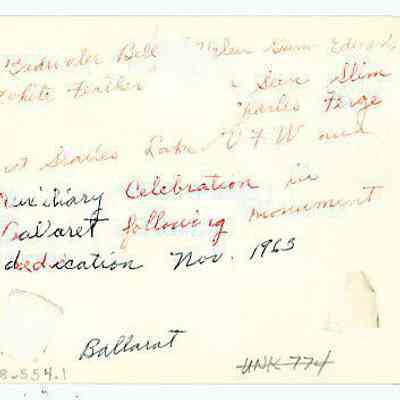 Bell Helen Gunn Edwards
White Feather Slim
Charles Ferge
at Searles Lake VFW and
Auxiliary Celebration in
Ballaret following monument
dedication Nov. 1963
Ballarat
UNK 774
8-554.1